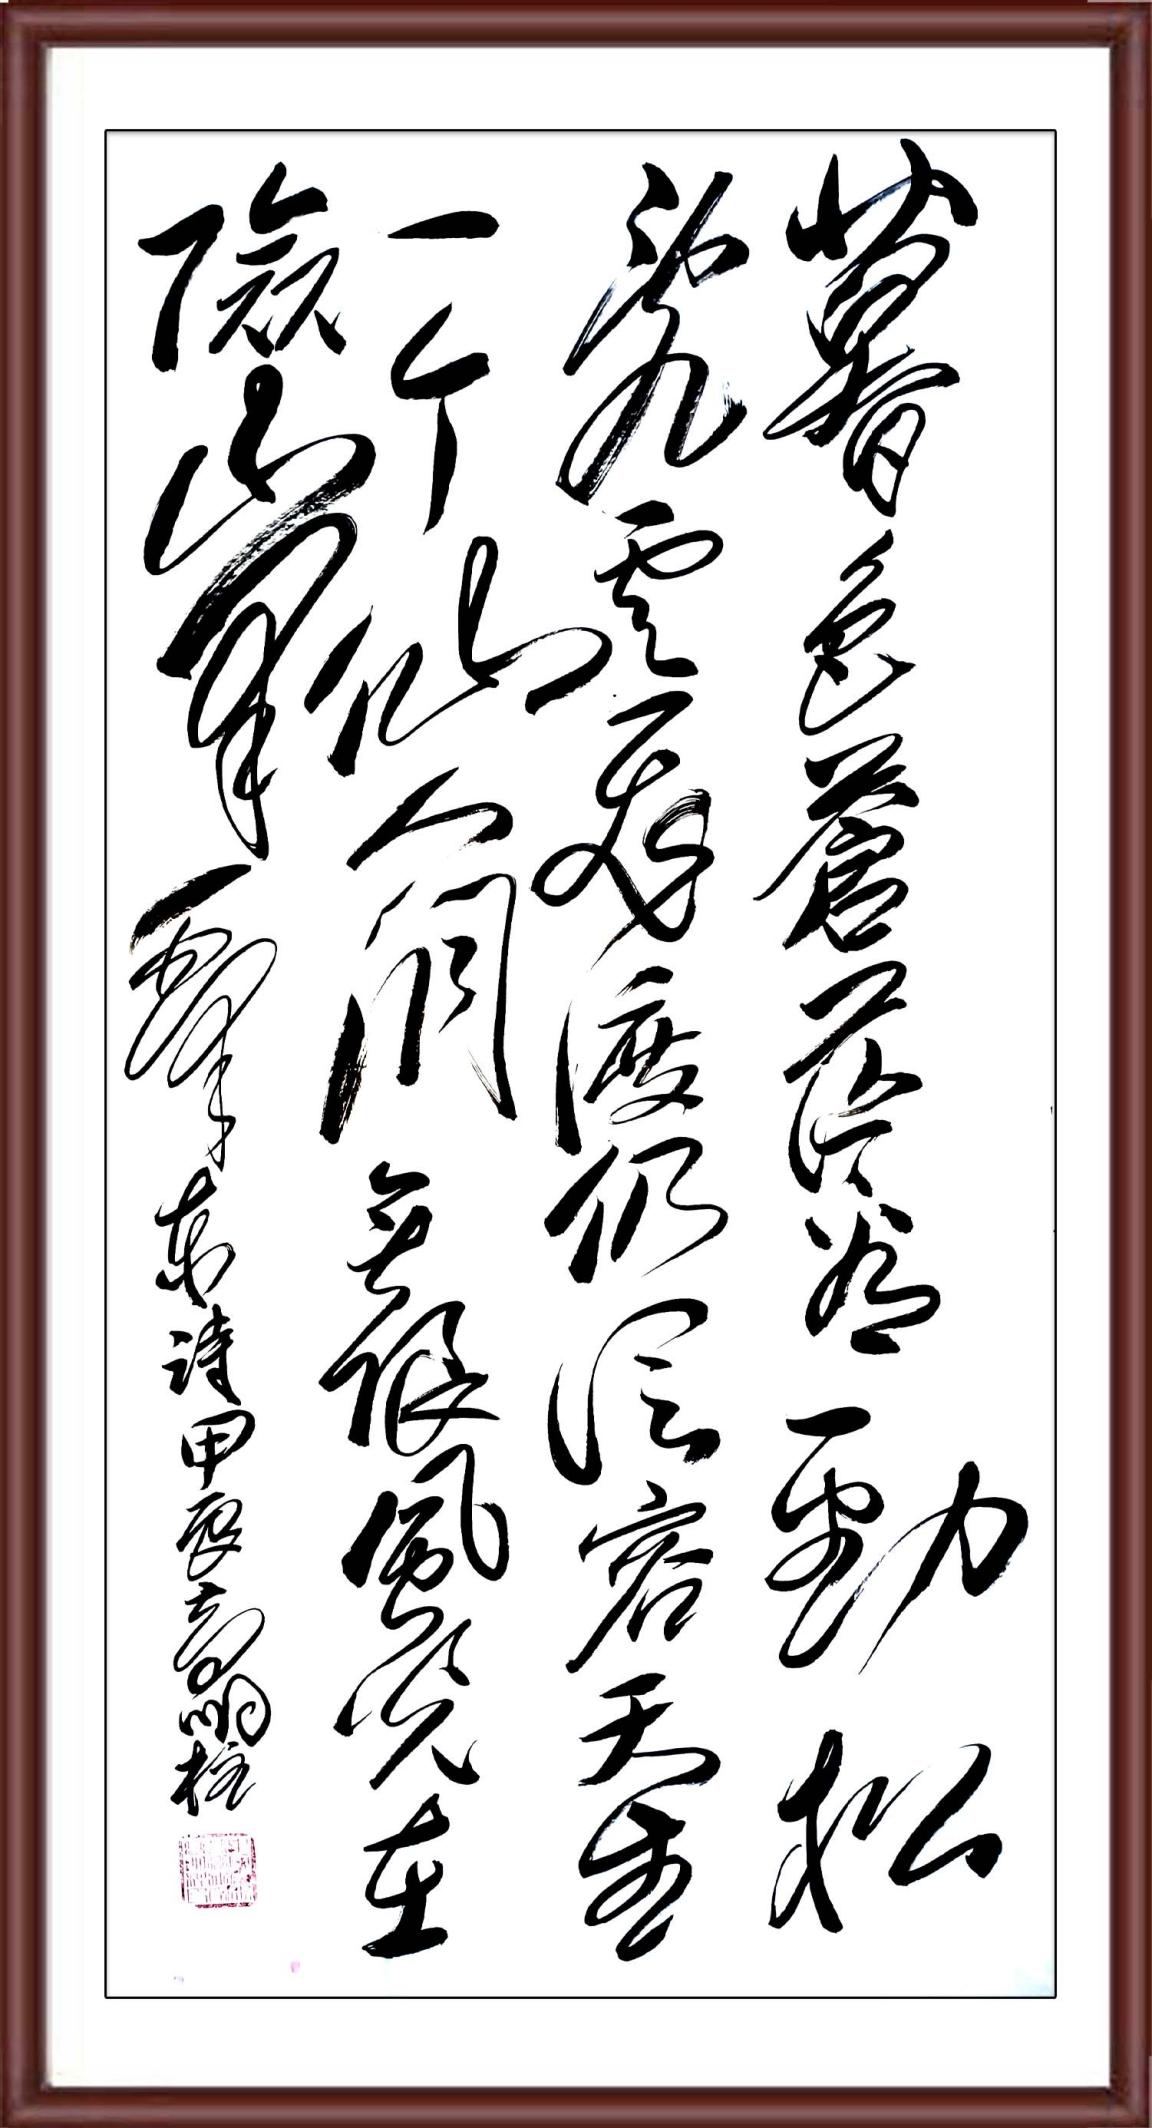 暮色苍茫看劲松
乱云飞渡仍从容天生
一个仙人洞无限风光在
险峰 东诗甲辰